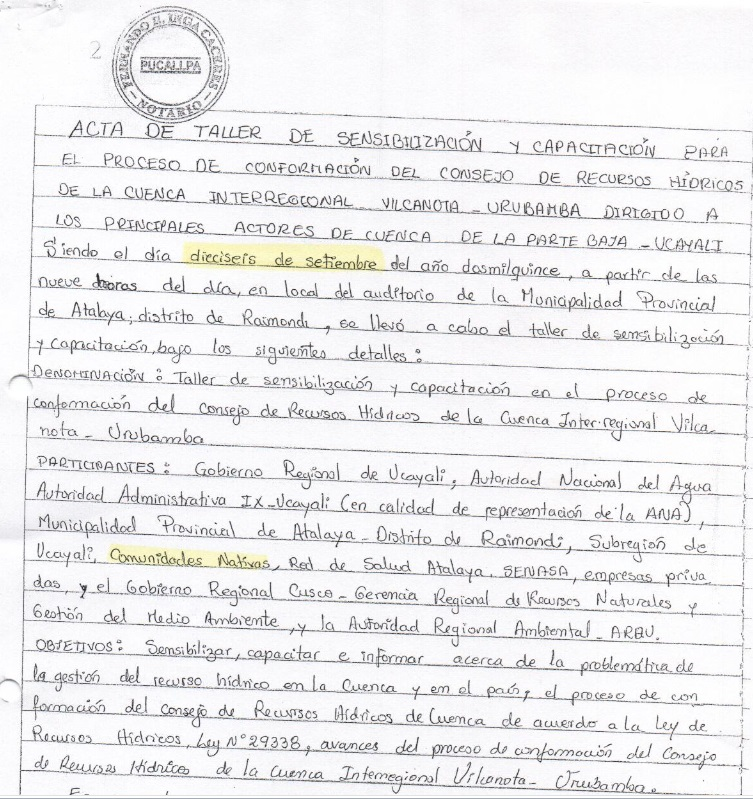 2
FERNANDO E. INGA CACERES
PUCALLPA
- NOTARIO -
ACTA DE TALLER DE SENSIBILIZACIÓN y CAPACITACIÓN PARA
EL PROCESO DE CONFORMACIÓN DEL CONSEJO DE RECURSOS HÍDRICOS
DE LA CUENCA INTERREGIONAL VILCANOTA - URUBAMBA DIRIGIDO A
LOS PRINCIPALES ACTORES DE CUENCA DE LA PARTE BAJA - UCAYALI
Siendo el día dieciseis de setiembre del año dosmilquince, a partir de las
nueve horas del día, en local del auditorio de la Municipalidad Provincial
de Atalaya, distrito de Raimondi, se llevó a cabo el taller de sensibilización
y capacitación, bajo los siguientes detalles:
DENOMINACIÓN: Taller de sensibilización y capacitación en el proceso de
conformación del consejo de Recursos Hídricos de la Cuenca Inter-regional Vilca
nota - Urubamba
PARTICIPANTES: Gobierno Regional de Ucayali, Autoridad Nacional del Agua
Autoridad Administrativa IX-Ucayali (en calidad de representación de la ANA),
Municipalidad Provincial de Atalaya - Distrito de Raimondi, Subregión de
Ucayali, Comunidades Nativas, Red de Salud Atalaya. SENASA, empresas priva
das, y el Gobierno Regional Cusco - Gerencia Regional de Recursos Naturales y
Gestión del Medio Ambiente, y la Autoridad Regional Ambiental - ARAU.
OBJETIVOS: Sensibilizar, capacitar e informar acerca de la problemática de
la gestión del recurso hídrico en la Cuenca y en el país, el proceso de con
formación del consejo de Recursos Hídricos de Cuenca de acuerdo a la Ley de
Recursos Hídricos, Ley N° 29338, avances del proceso de conformación del Consejo
de Recursos Hídricos de la Cuenca Interregional Vilcanota - Urubamba.